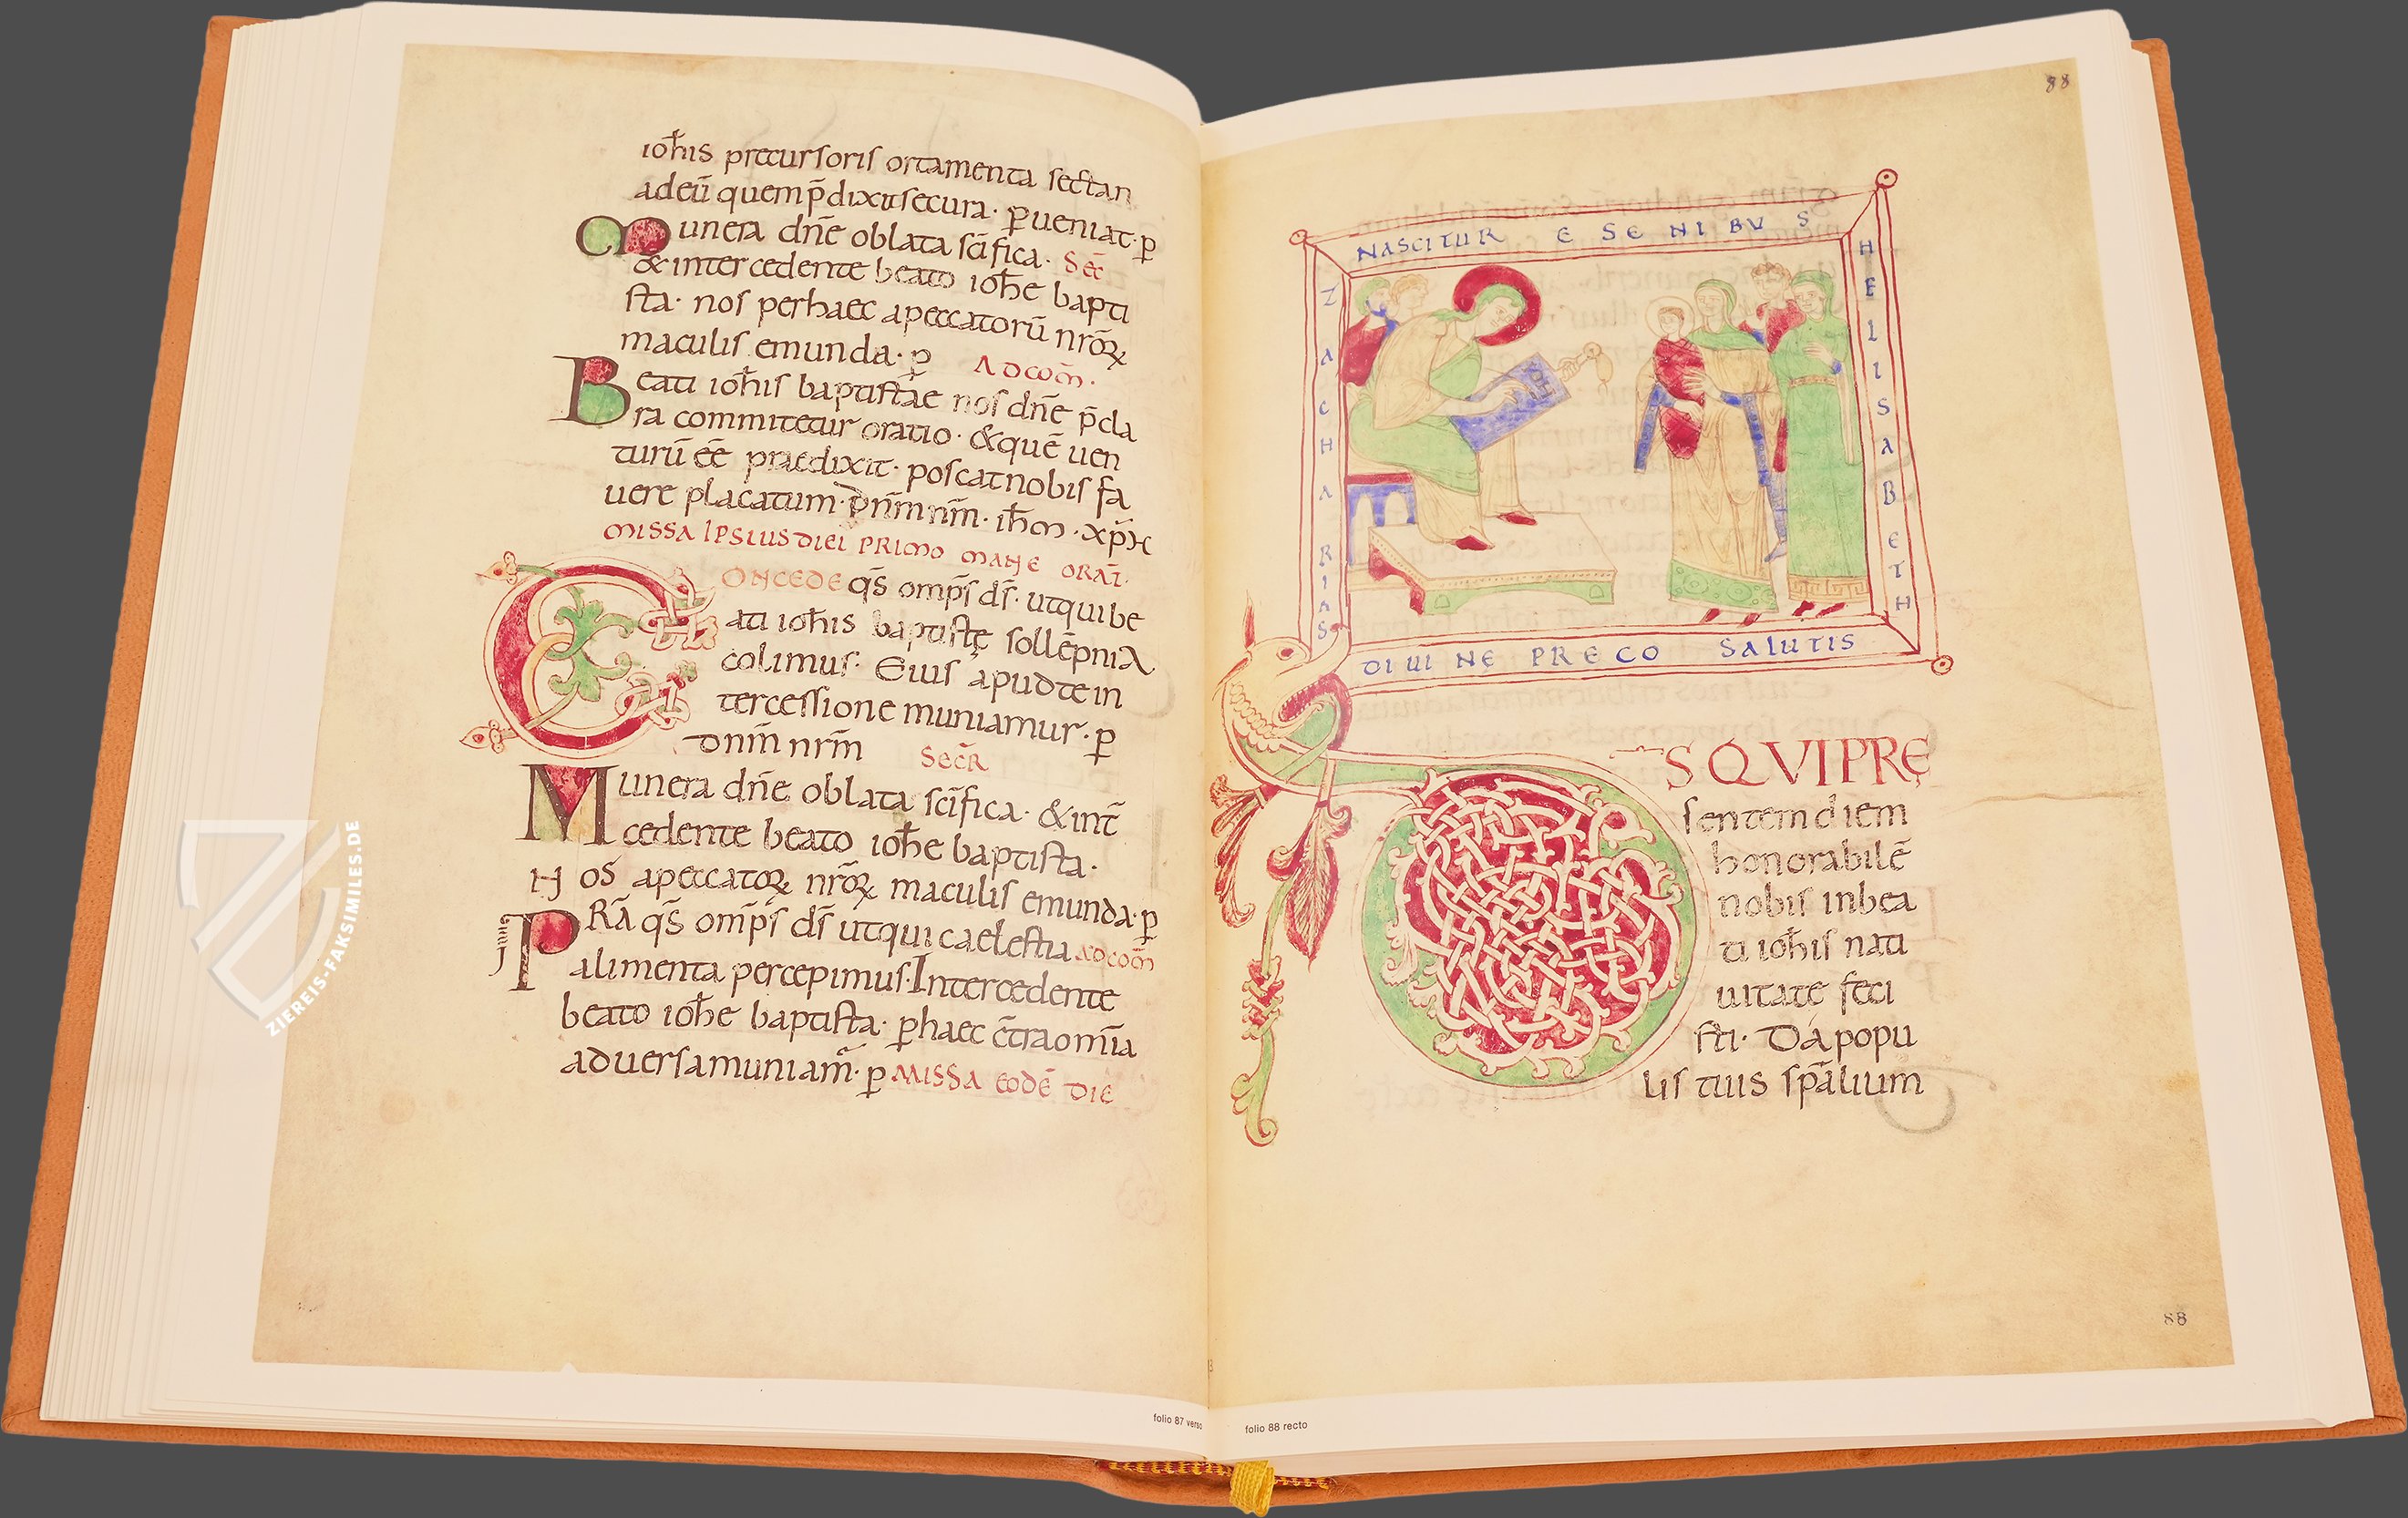 ioh̄is precursoris ortamenta sectan
adeū quem p̄dixit secura· ꝑueniat· ꝑ
Munera dn̄e oblata sc̄ifica· Sec̄
& intercedente beato ioh̄e bapti
sta· nos perhaec apeccatorū nr̄oꝝ
maculis emunda· ꝑ ADCOM̄·
Beati ioh̄is baptistae nos dn̄e p̄cla
ra commitetur oratio· & quē uen
turū eē praedixit· poscat nobis fa
uere placatum· dn̄m nr̄m· ih̄m· xp̄m
MISSA IPSIUS DIEI PRIMO MANE ORAT̄·
CONCEDE qs̄ omp̄s ds̄· utqui be
ati ioh̄is baptistę sollēpnia
colimus· Eius apud te in
tercessione muniamur· ꝑ
dnm̄ nrm̄ SECR̄
Munera dn̄e oblata sc̄ifica· & int̄
cedente beato ioh̄e baptista·
Nos apeccatoꝝ nr̄oꝝ maculis emunda· ꝑ
PRĀ qs̄ omp̄s ds̄ utqui caelestia ADCOM̄
alimenta percepimus· Intercedente
beato ioh̄e baptista· ꝑhaec c̄tra om̄ia
aduersa muniam̄· ꝑ MISSA EODĒ DIE
folio 87 verso
88
NASCITUR E SENIBUS
ZACHARIAS
HELISABETH
DIUINE PRECO SALUTIS
DS QVI PRĘ
sentem diem
honorabilē
nobis inbea
ti ioh̄is nati
uitatę feci
sti· Da popu
lis tuis sp̄alium
88
folio 88 recto
ZIEREIS-FAKSIMILES.DE